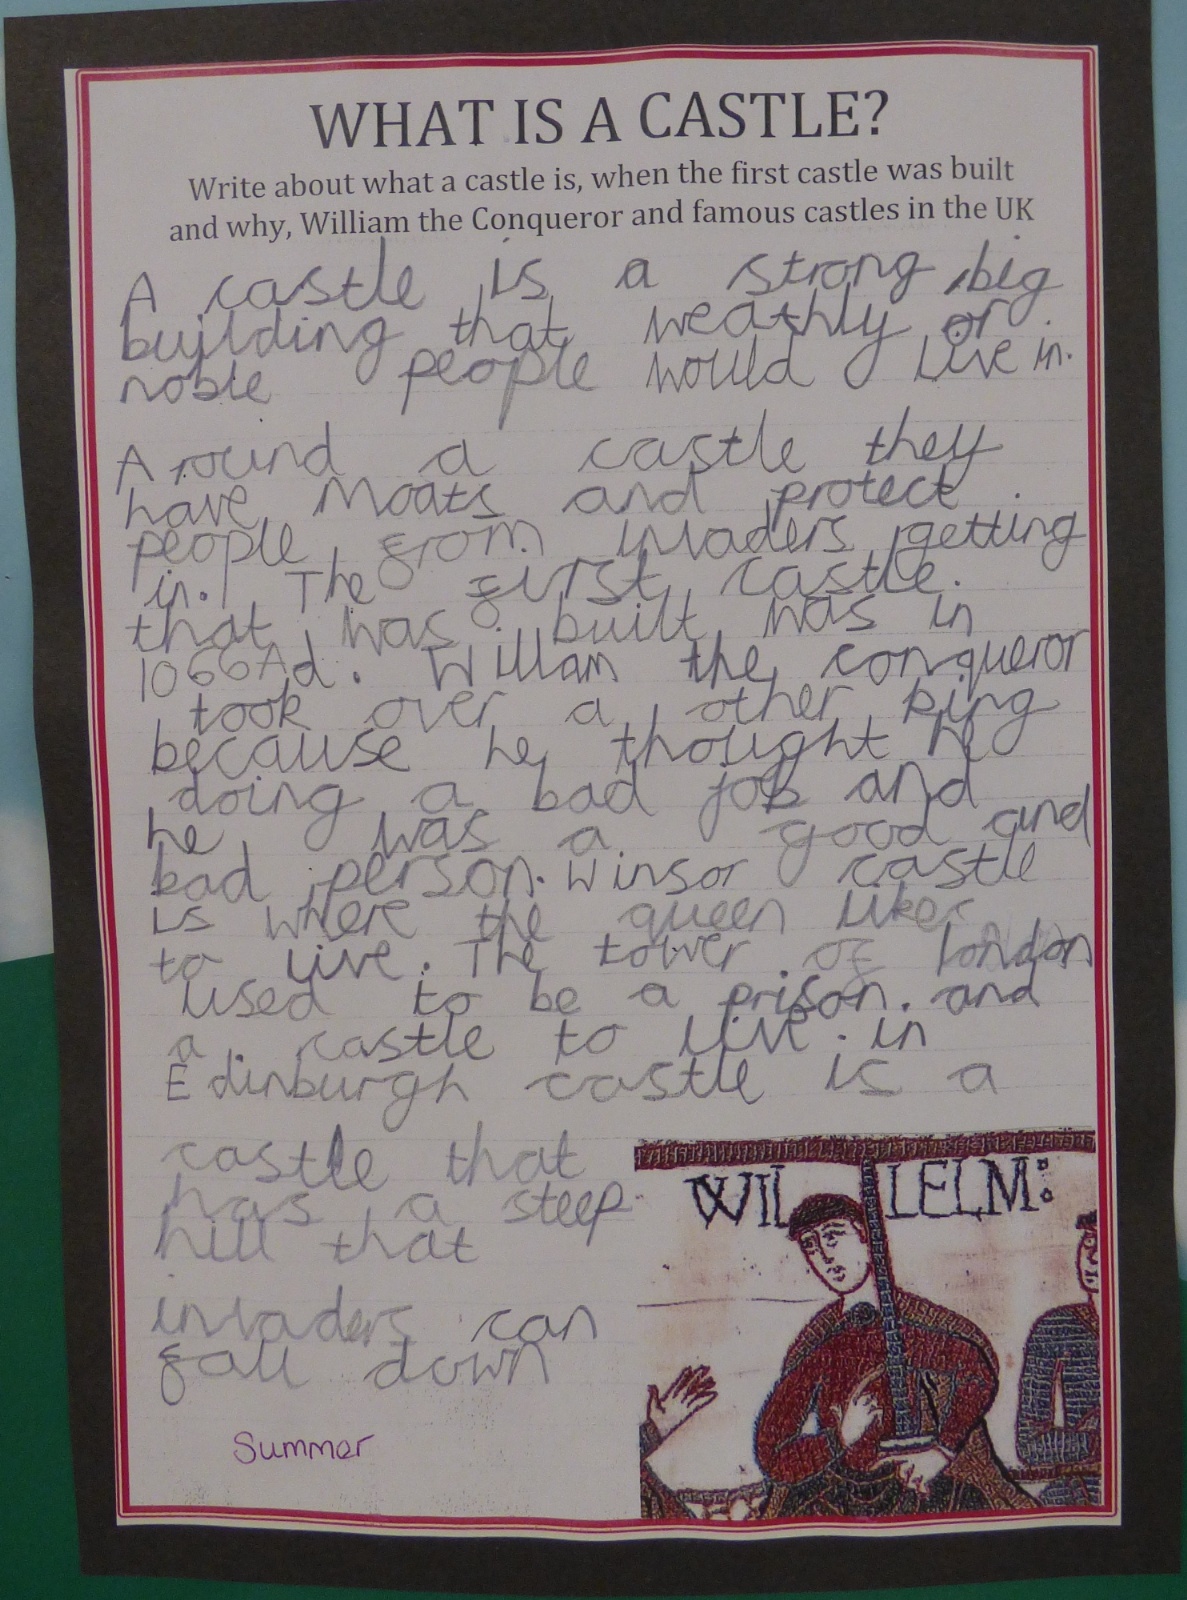 WHAT IS A CASTLE?
Write about what a castle is, when the first castle was built
and why, William the Conqueror and famous castles in the UK
A castle is a strong, big
building that weathly or
noble people would live in.
Around a castle they
have moats and protect
people from invaders getting
in. The first castle.
that was built was in
1066Ad. Willam the conqueror
took over a other king
because he thought he
doing a bad job and
he was a good and
bad person. Winsor castle
is where the queen likes
to live. The tower of london
used to be a prison. and
a castle to live. in
Edinburgh castle is a
castle that
has a steep
hill that
invaders can
fall down
WILLELM:
Summer